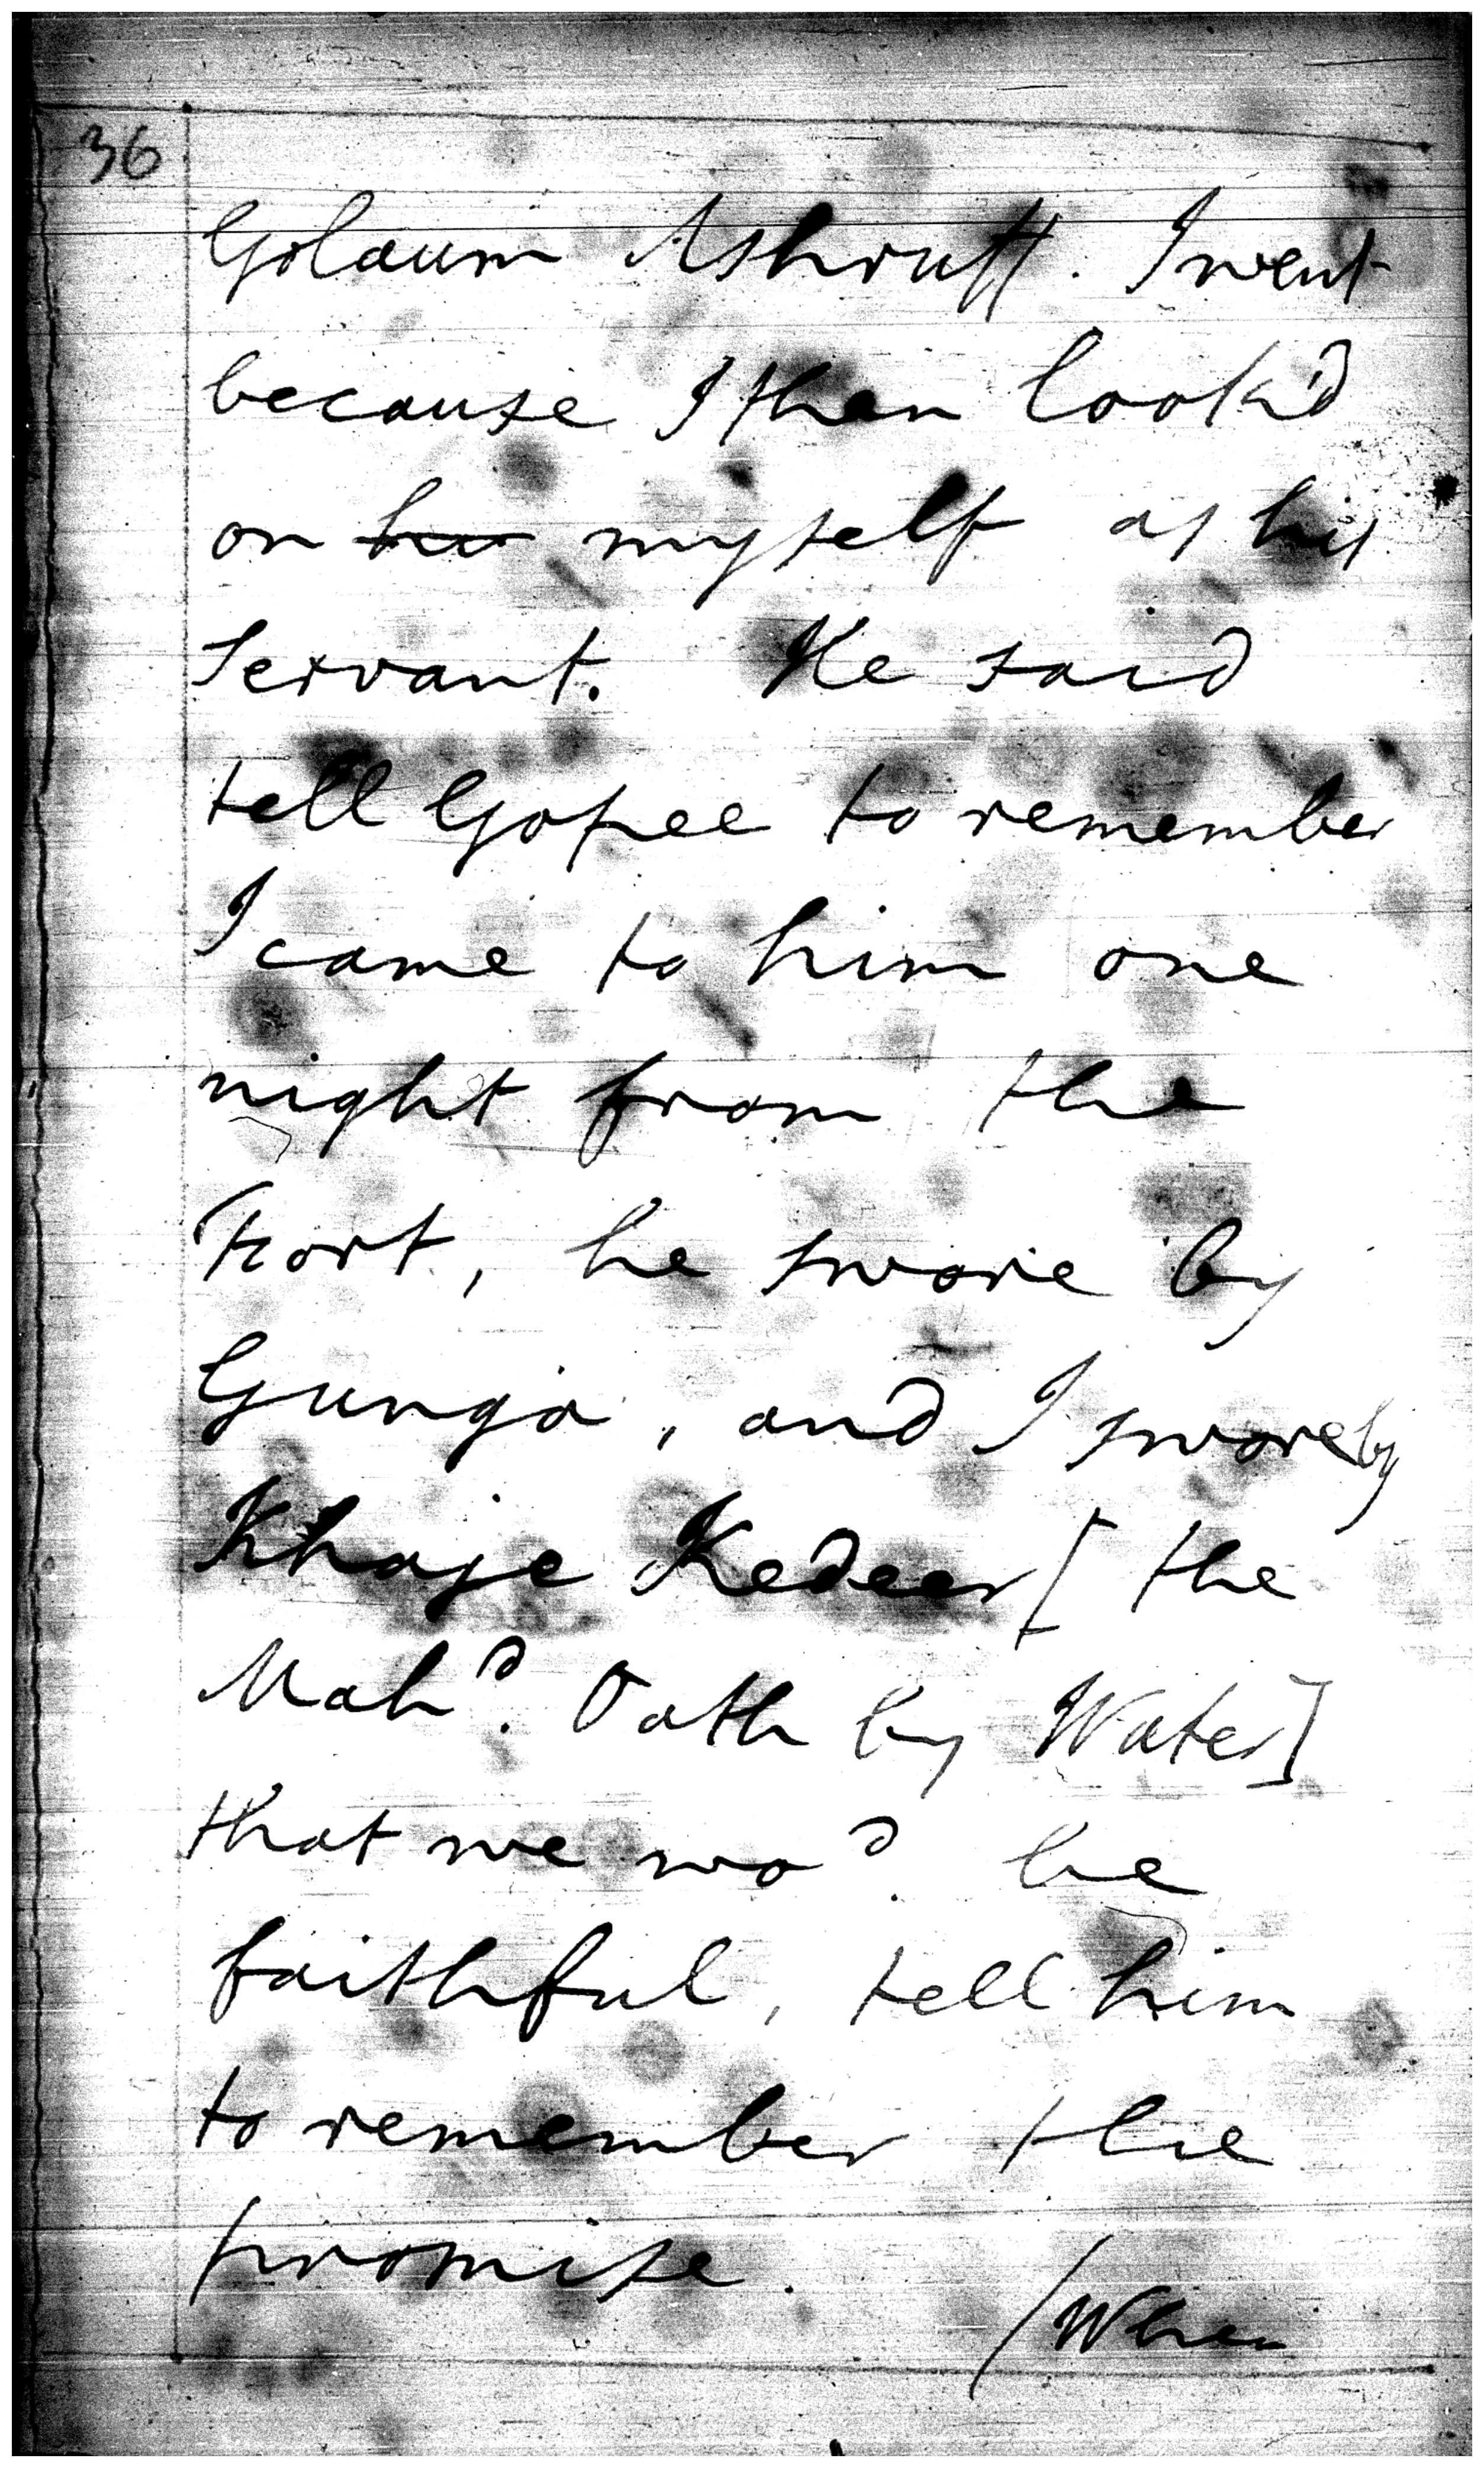 36
Golaum Ashruff. I went
because I then look'd
on his myself as his
Servant. He said
tell Gopee to remember
I came to him one
night from the
Fort, he swore by
Gunga, and I swore by
Khaje Kedeer [the
Mahd. Oath by Water]
that we wod. be
faithful, tell him
to remember the
promise.
/When